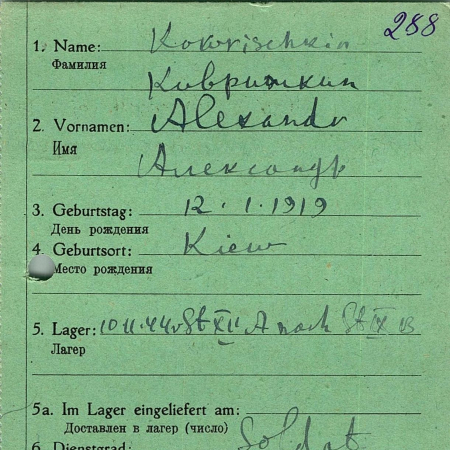 288
1. Name: Kowrischkin
Фамилия
Ковришкин
2. Vornamen: Alexandr
Имя
Александр
3. Geburtstag: 12.1.1919
День рождения
4. Geburtsort: Kiew
Место рождения
5. Lager: 10.11.44 v St XII A nach St IX B
Лагерь
5a. Im Lager eingeliefert am:
Доставлен в лагерь (число)
6. Dienstgrad: Soldat